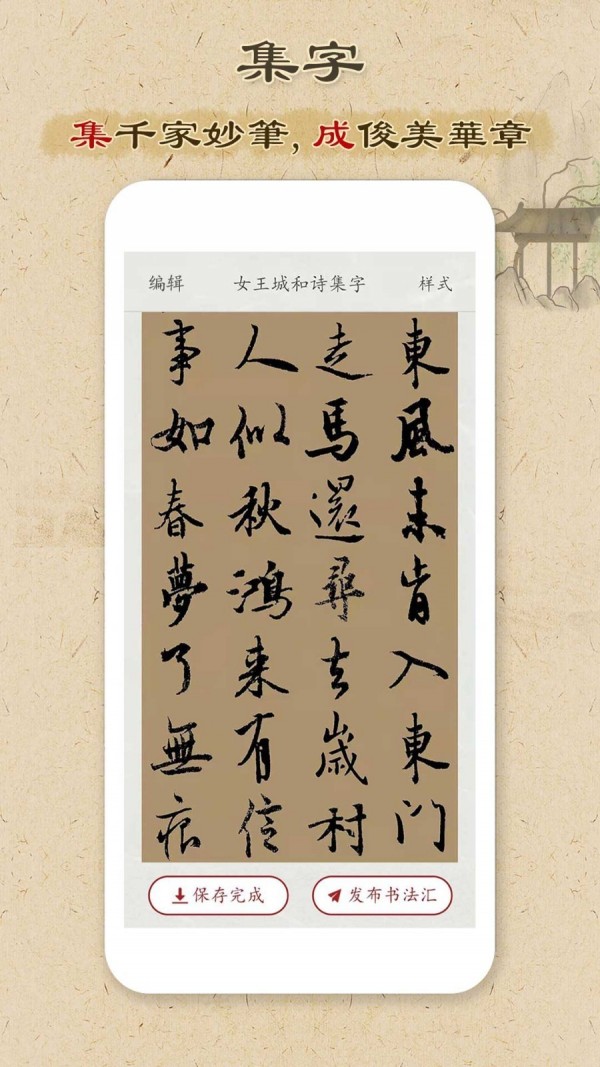 集字
集千家妙筆,成俊美華章
编辑 女王城和诗集字 样式
東風未肯入東門
走馬還尋去歲村
人似秋鴻来有信
事如春夢了無痕
保存完成 发布书法汇